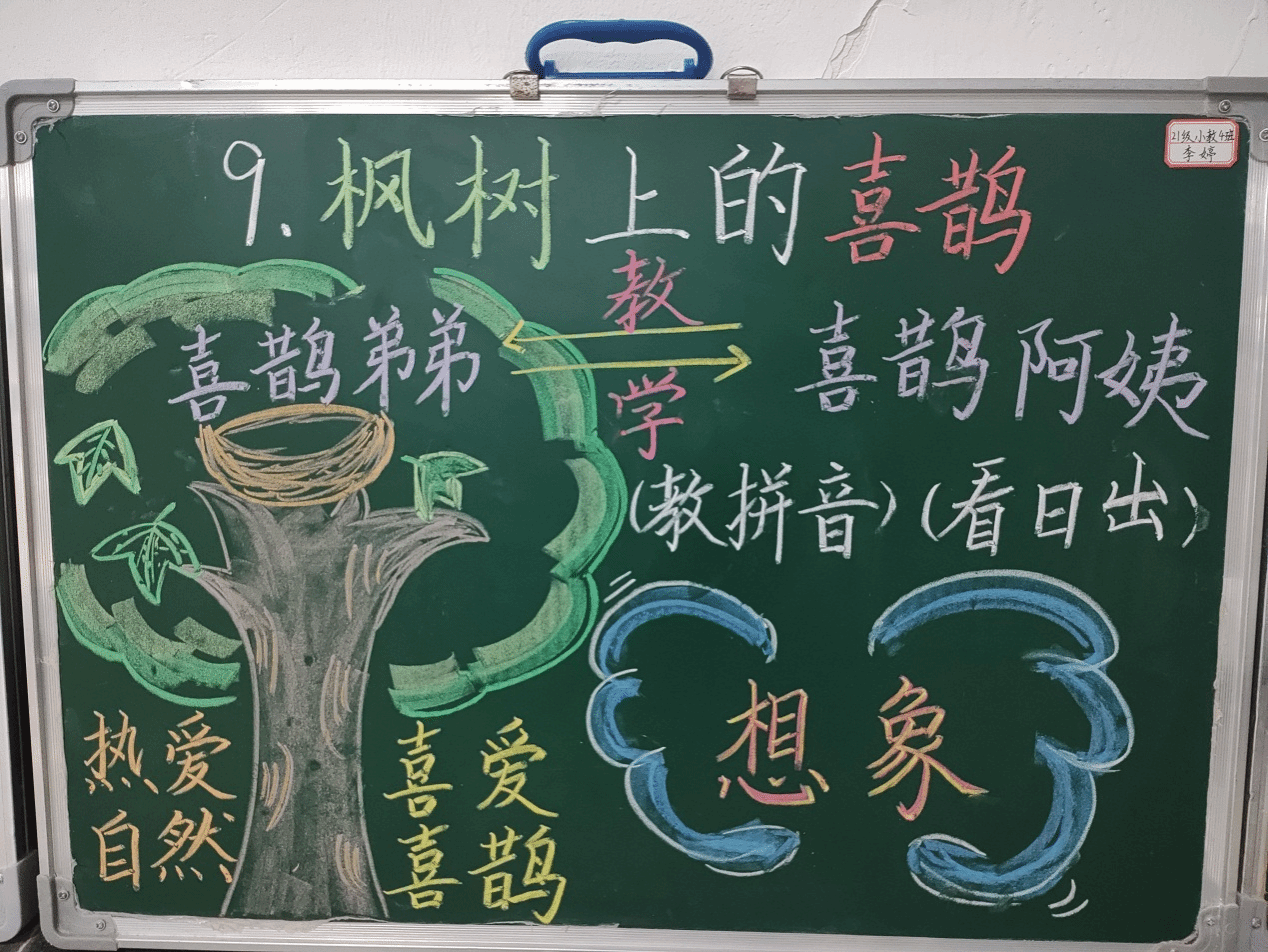 9.枫树上的喜鹊
21级小教4班
李婷
教
喜鹊弟弟
喜鹊阿姨
学
(教拼音)(看日出)
想象
热爱
自然
喜爱
喜鹊